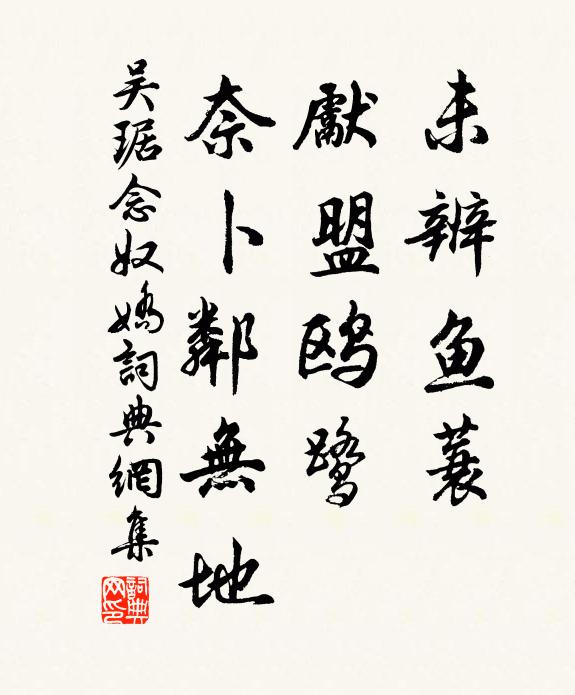 未辨鱼蓑
獻盟鸥鹭
奈卜鄰無地
吴琚念奴嬌詞典網集
詞典网印